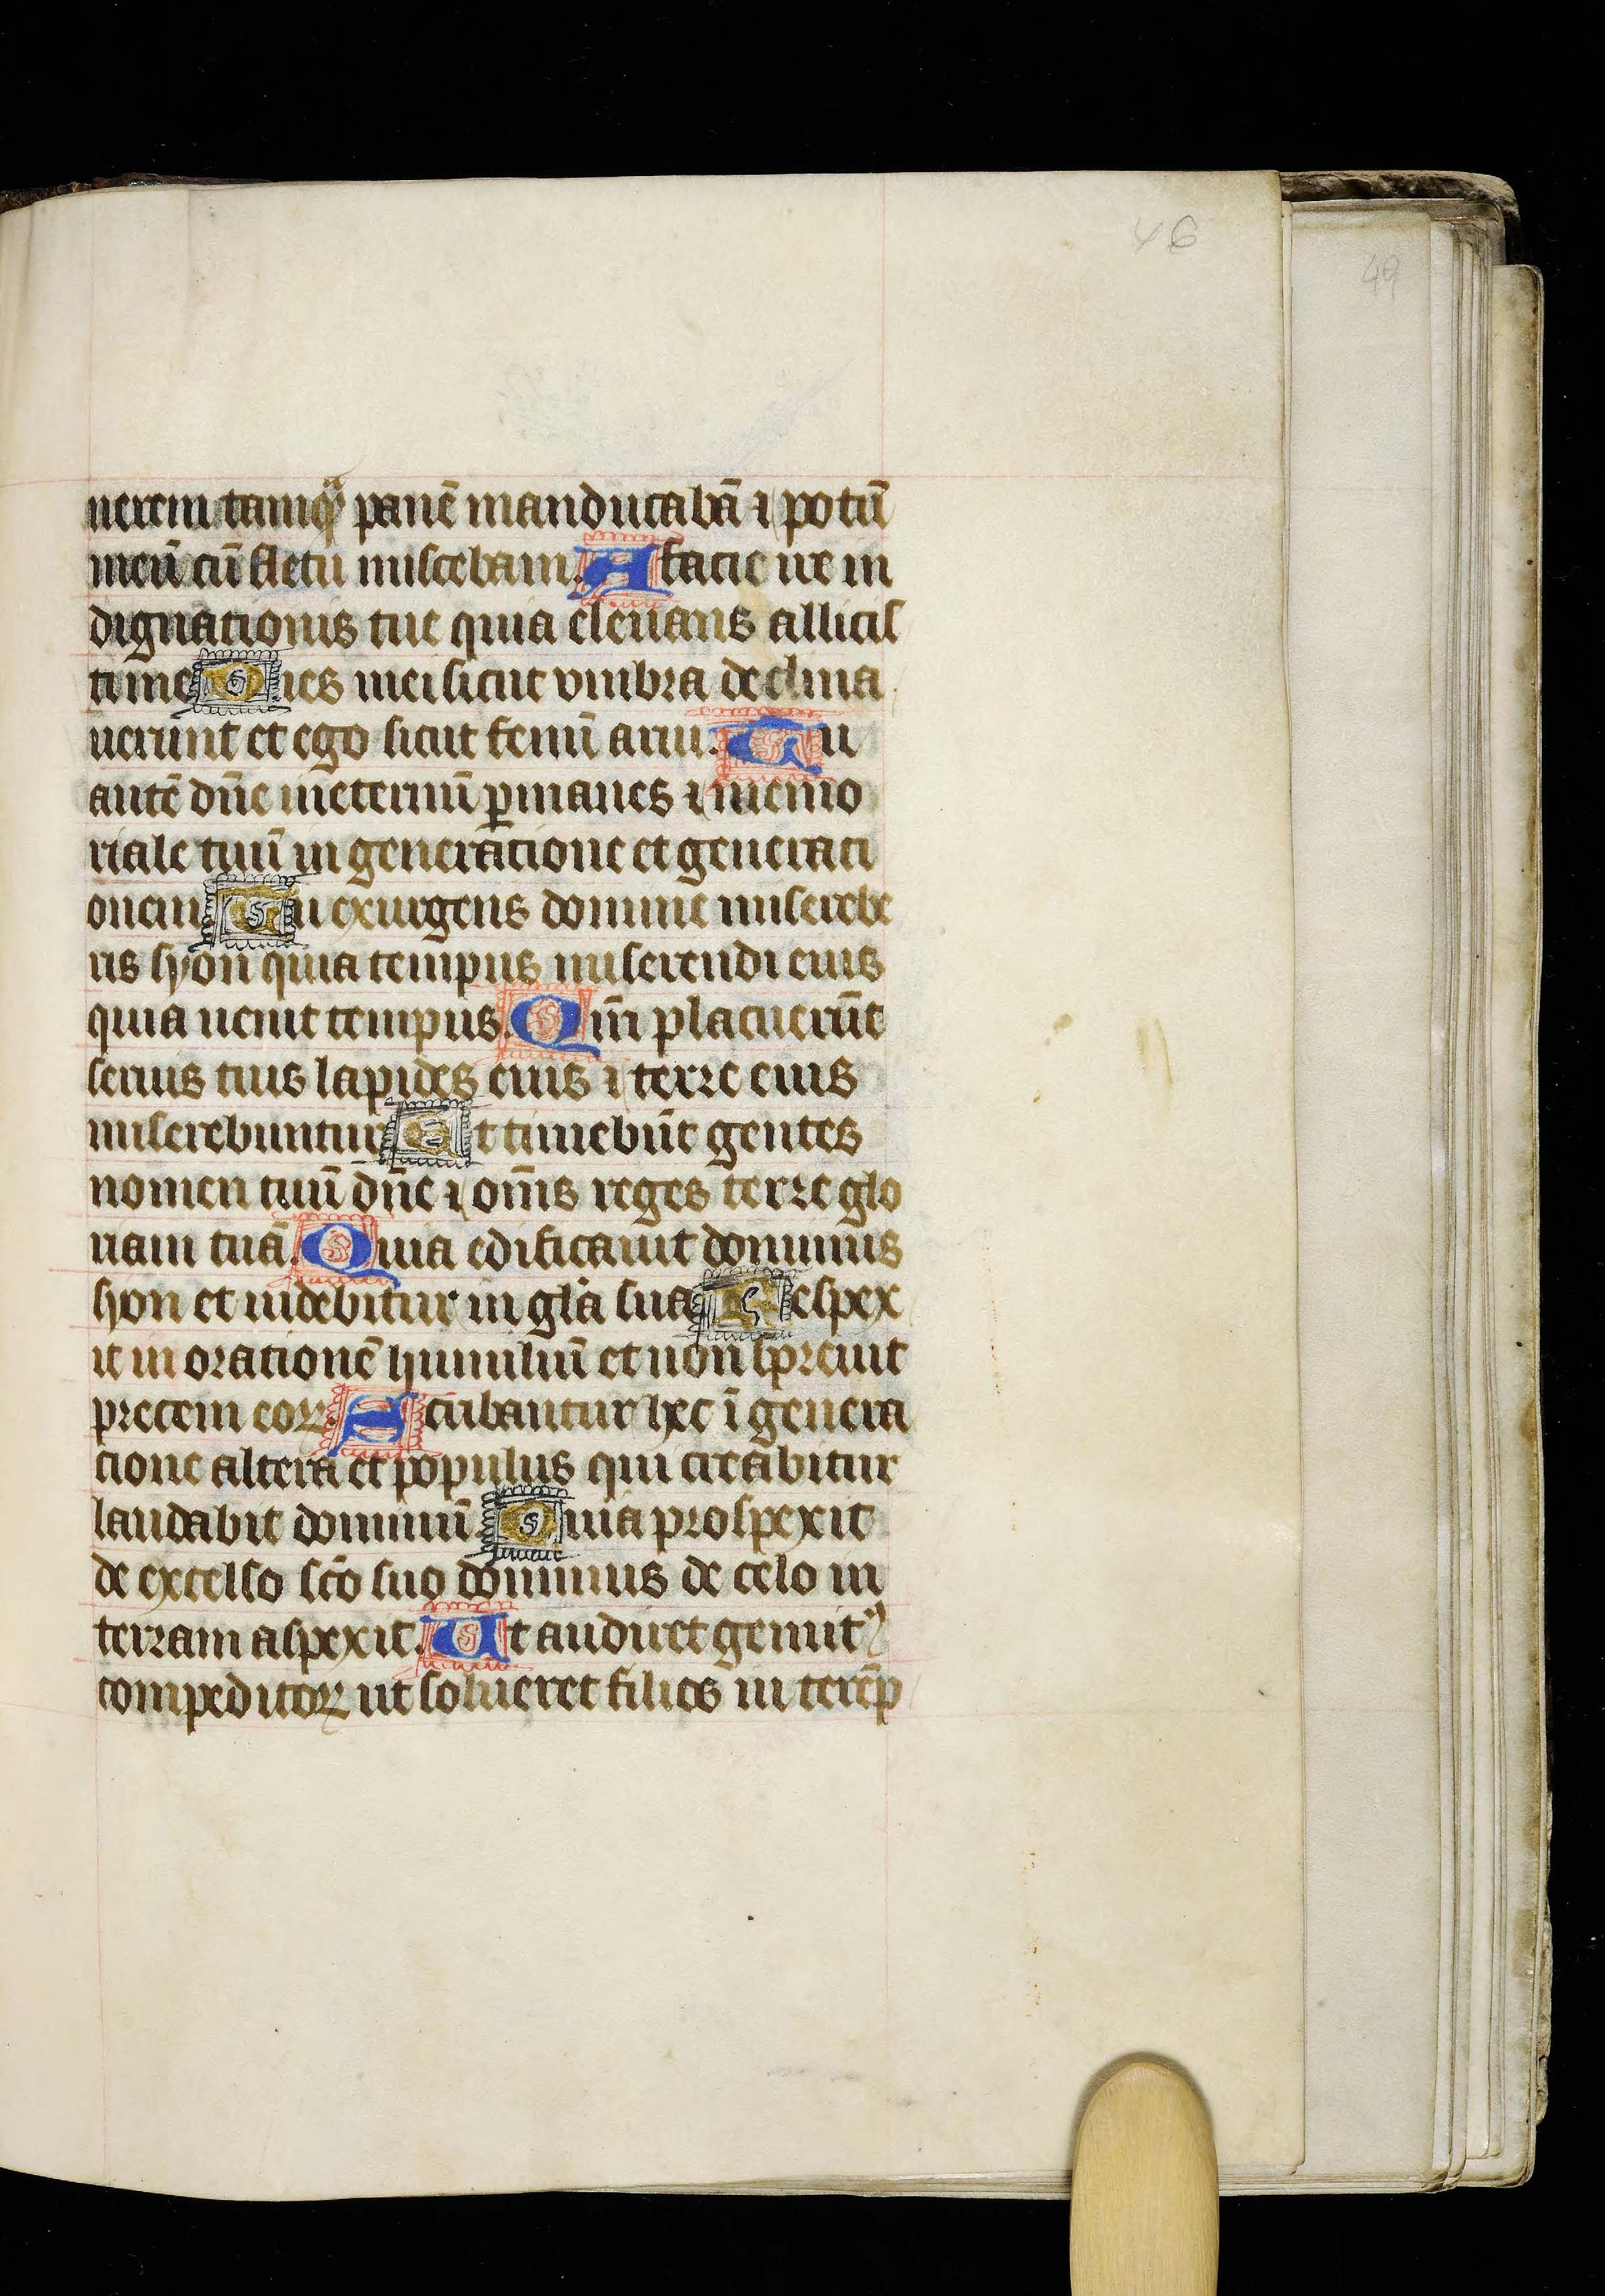 46
49
nerem tamqᷓ panē manducabā ⁊ potū
meū cū fletu miscebam. A facie ire in
dignationis tue quia eleuans allicis
ti me Dies mei sicut vmbra declina
uerunt et ego sicut fenū arui. Tu
autē dn̄e ineternū ꝑmanes ⁊ memo
riale tuū in generatione et generati
onem Tu exurgens domine miserebe
ris syon quia tempus miserendi eius
quia uenit tempus. Qm̄ placuerūt
seruis tuis lapides eius ⁊ terre eius
miserebuntur Et timebūt gentes
nomen tuū dn̄e ⁊ om̄s reges terre glo
riam tuā. Quia edificauit dominus
syon et uidebitur in gla̅ sua Respex
it in orationē humiliū et non spreuit
precem eoꝝ. Scribantur hec ī genera
tione altera et populus qui creabitur
laudabit dominū. Quia prospexit
de excelso sc̄o suo dominus de celo in
terram aspexit. Ut audiret gemitꝰ
compeditoꝝ ut solueret filios in terēp